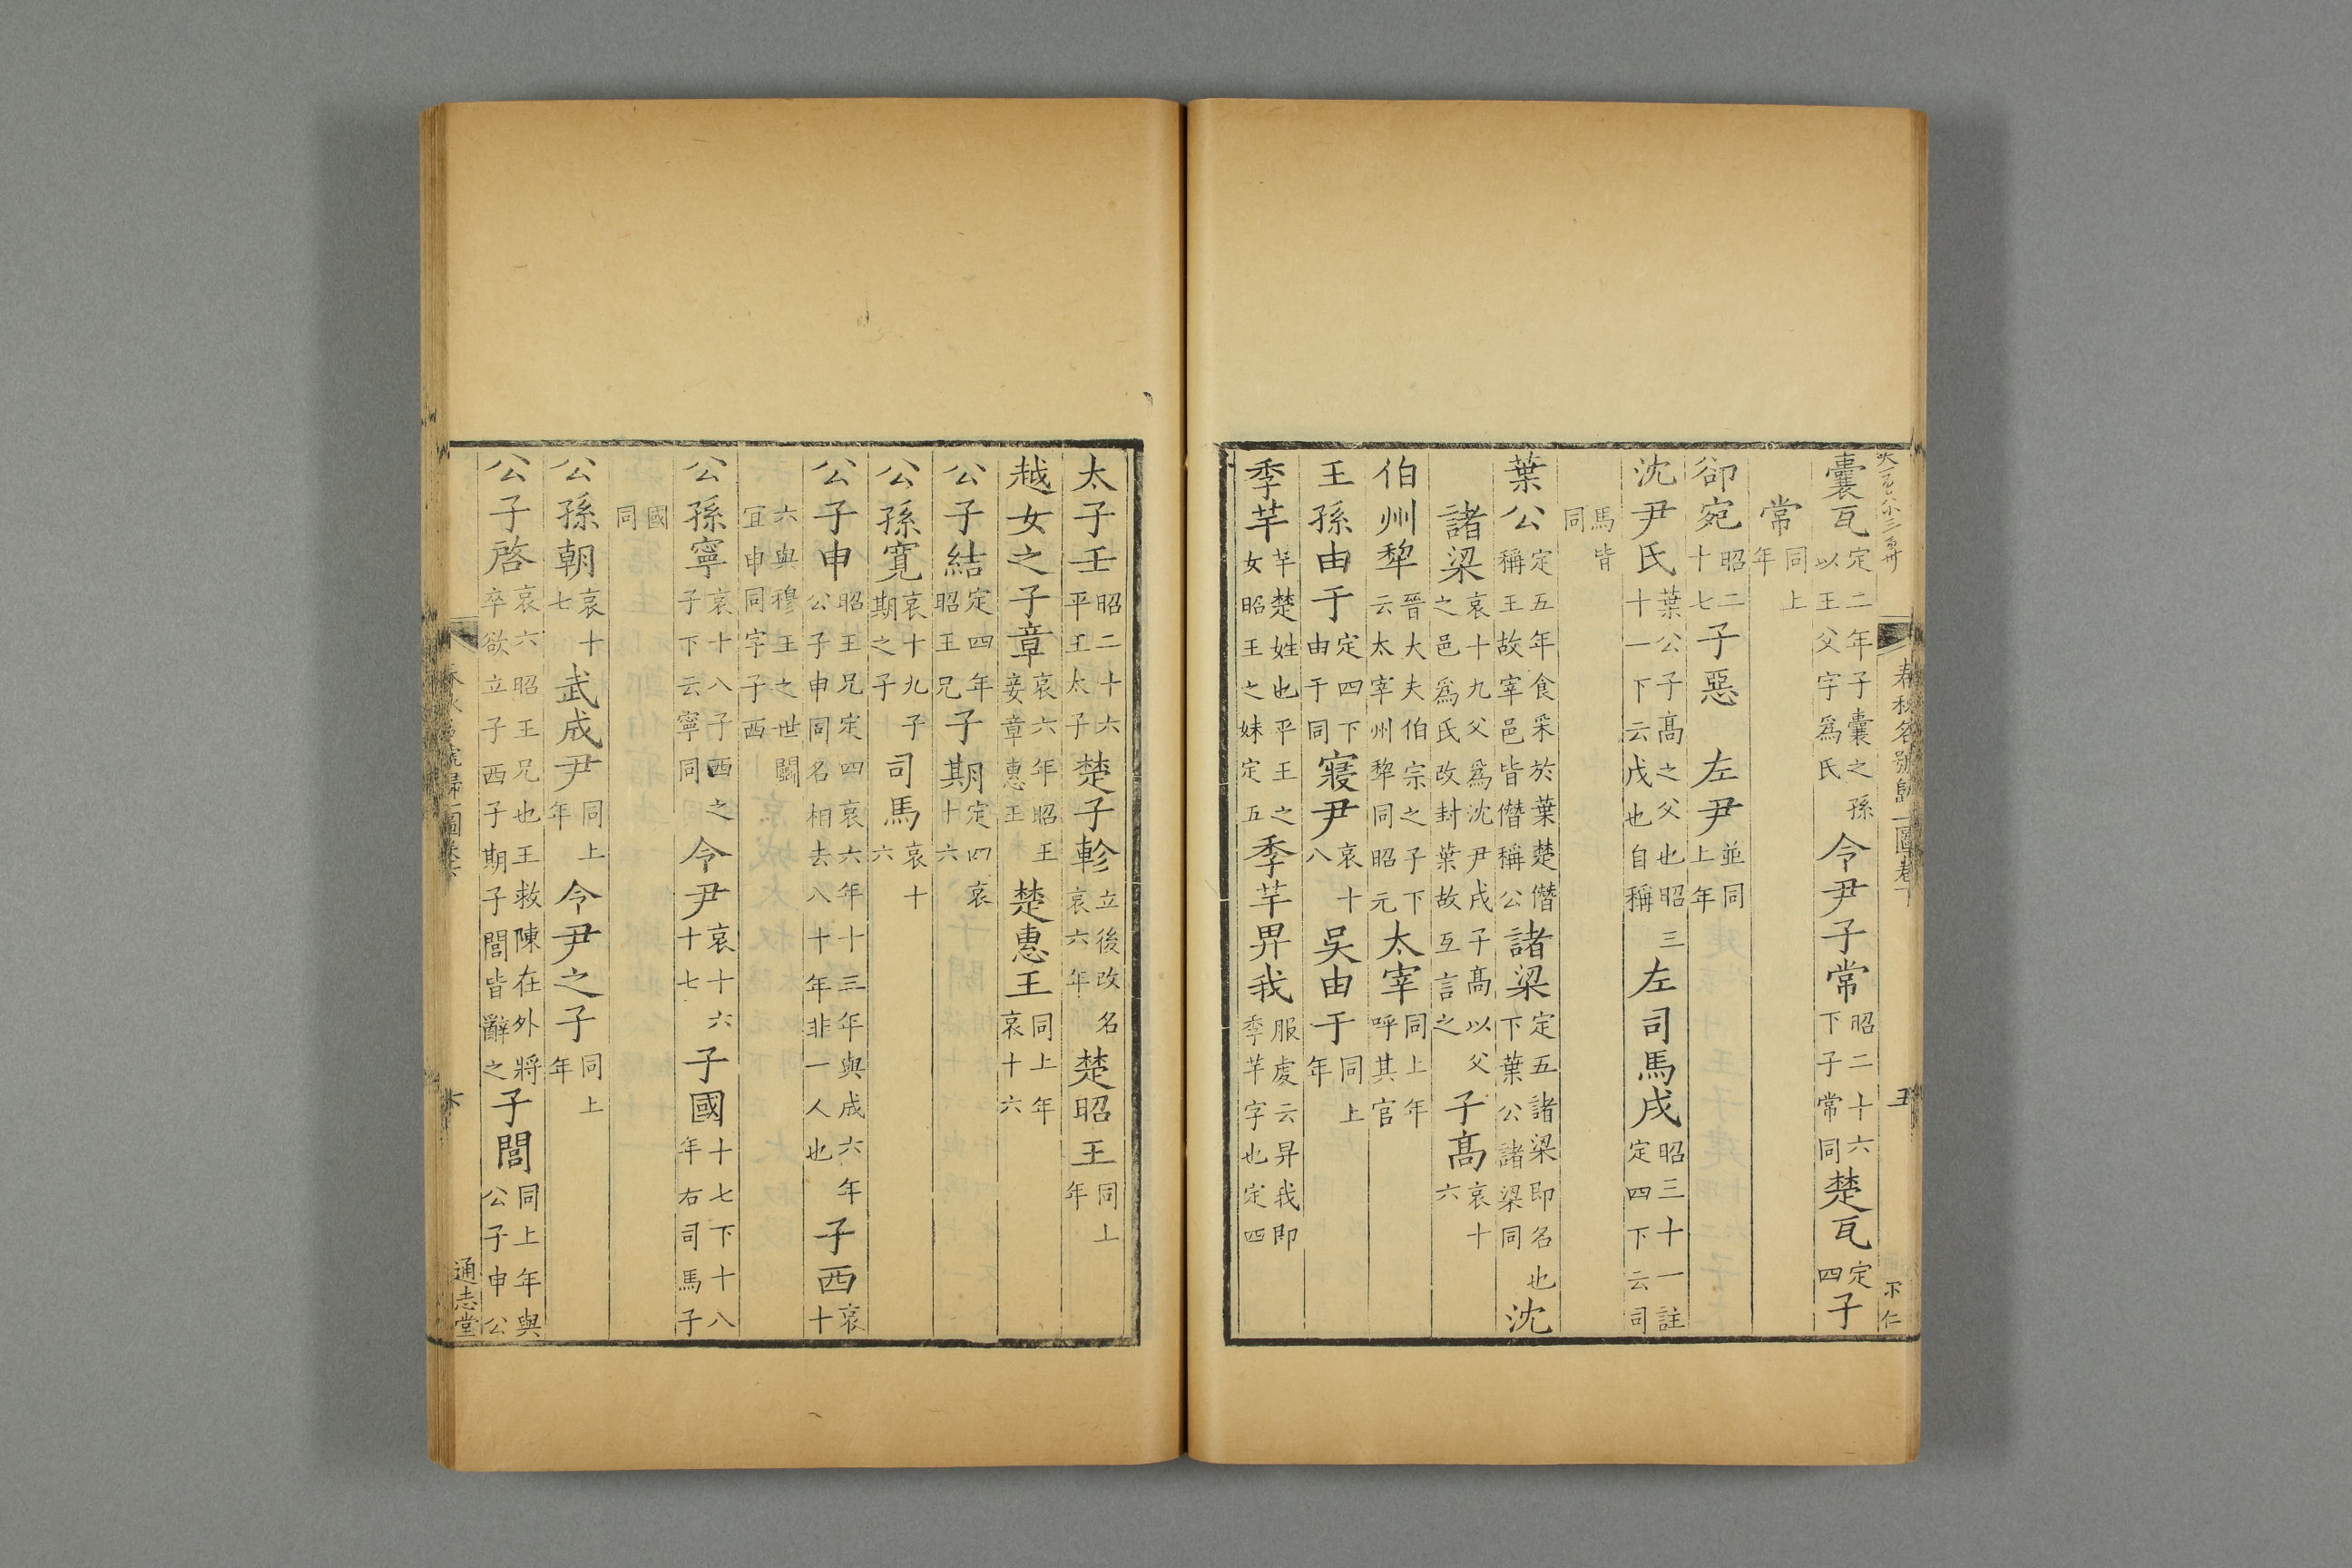 春秋名號歸一圖卷下
五
囊瓦定二年子囊之孫以王父字爲氏令尹子常昭二十六下子常同楚瓦定四子
常同上年
郤宛昭二十七子惡 左尹並同上年
沈尹氏葉公子髙之父也昭三十一下云戌也自稱左司馬戌昭三十一註定四下云司
馬皆同
葉公定五年食采於葉楚僭稱王故宰邑皆僭稱公諸梁定五諸梁即名也下葉公諸梁同沈
諸梁哀十九父爲沈尹戌子髙以父之邑爲氏改封葉故互言之子髙哀十六
伯州犂晉大夫伯宗之子下云太宰州犂同昭元太宰同上年呼其官
王孫由于定四下由于同寢尹哀十八吳由于同上年
季芊芊楚姓也平王之女昭王之妹定五季芊畀我服虔云畀我即季芊字也定四
太子壬昭二十六平王太子楚子軫立後改名哀六年楚昭王同上年
越女之子章哀六年昭王妾章惠王楚惠王同上年哀十六
公子結定四年昭王兄子期定四哀十六
公孫寛哀十九子期之子司馬哀十六
公子申昭王兄定四哀六年十三年與成六年公子申同名相去八十年非一人也子西哀十
六與穆王之世鬭宜申同字子西
公孫寧哀十八子西之子下云寧同令尹哀十六十七子國十七下十八年右司馬子
國同
公孫朝哀十七武成尹同上年令尹之子同上年
公子啓哀六昭王兄也王救陳在外將卒欲立子西子期子閭皆辭之子閭同上年與公子申公
通志堂